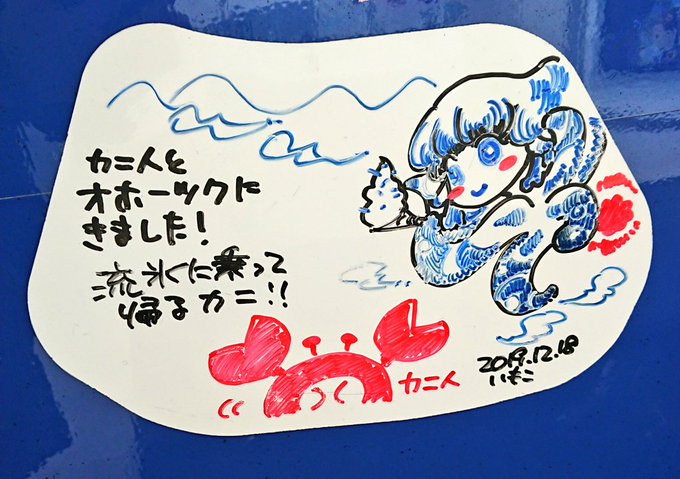 カニ人と
オホーツクに
きました!
流氷に乗って
帰るカニ!!
カニ人
2019.12.18
いもこ